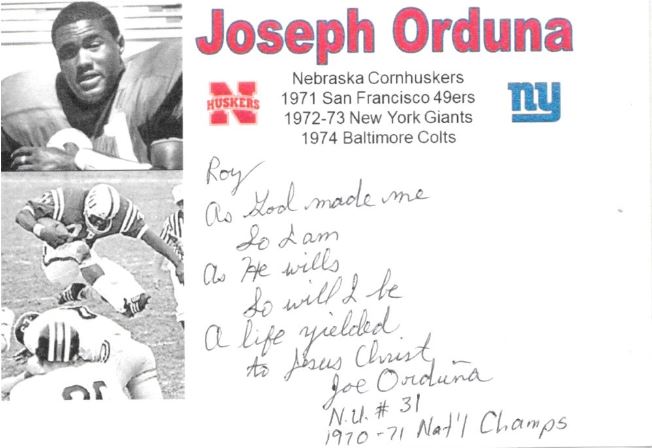 Joseph Orduna
Nebraska Cornhuskers
1971 San Francisco 49ers
1972-73 New York Giants
1974 Baltimore Colts
N
HUSKERS
ny
Roy
As God made me
So I am
As He wills
So will I be
A life yielded
to Jesus Christ
Joe Orduña
N.U. # 31
1970-71 Nat'l Champs